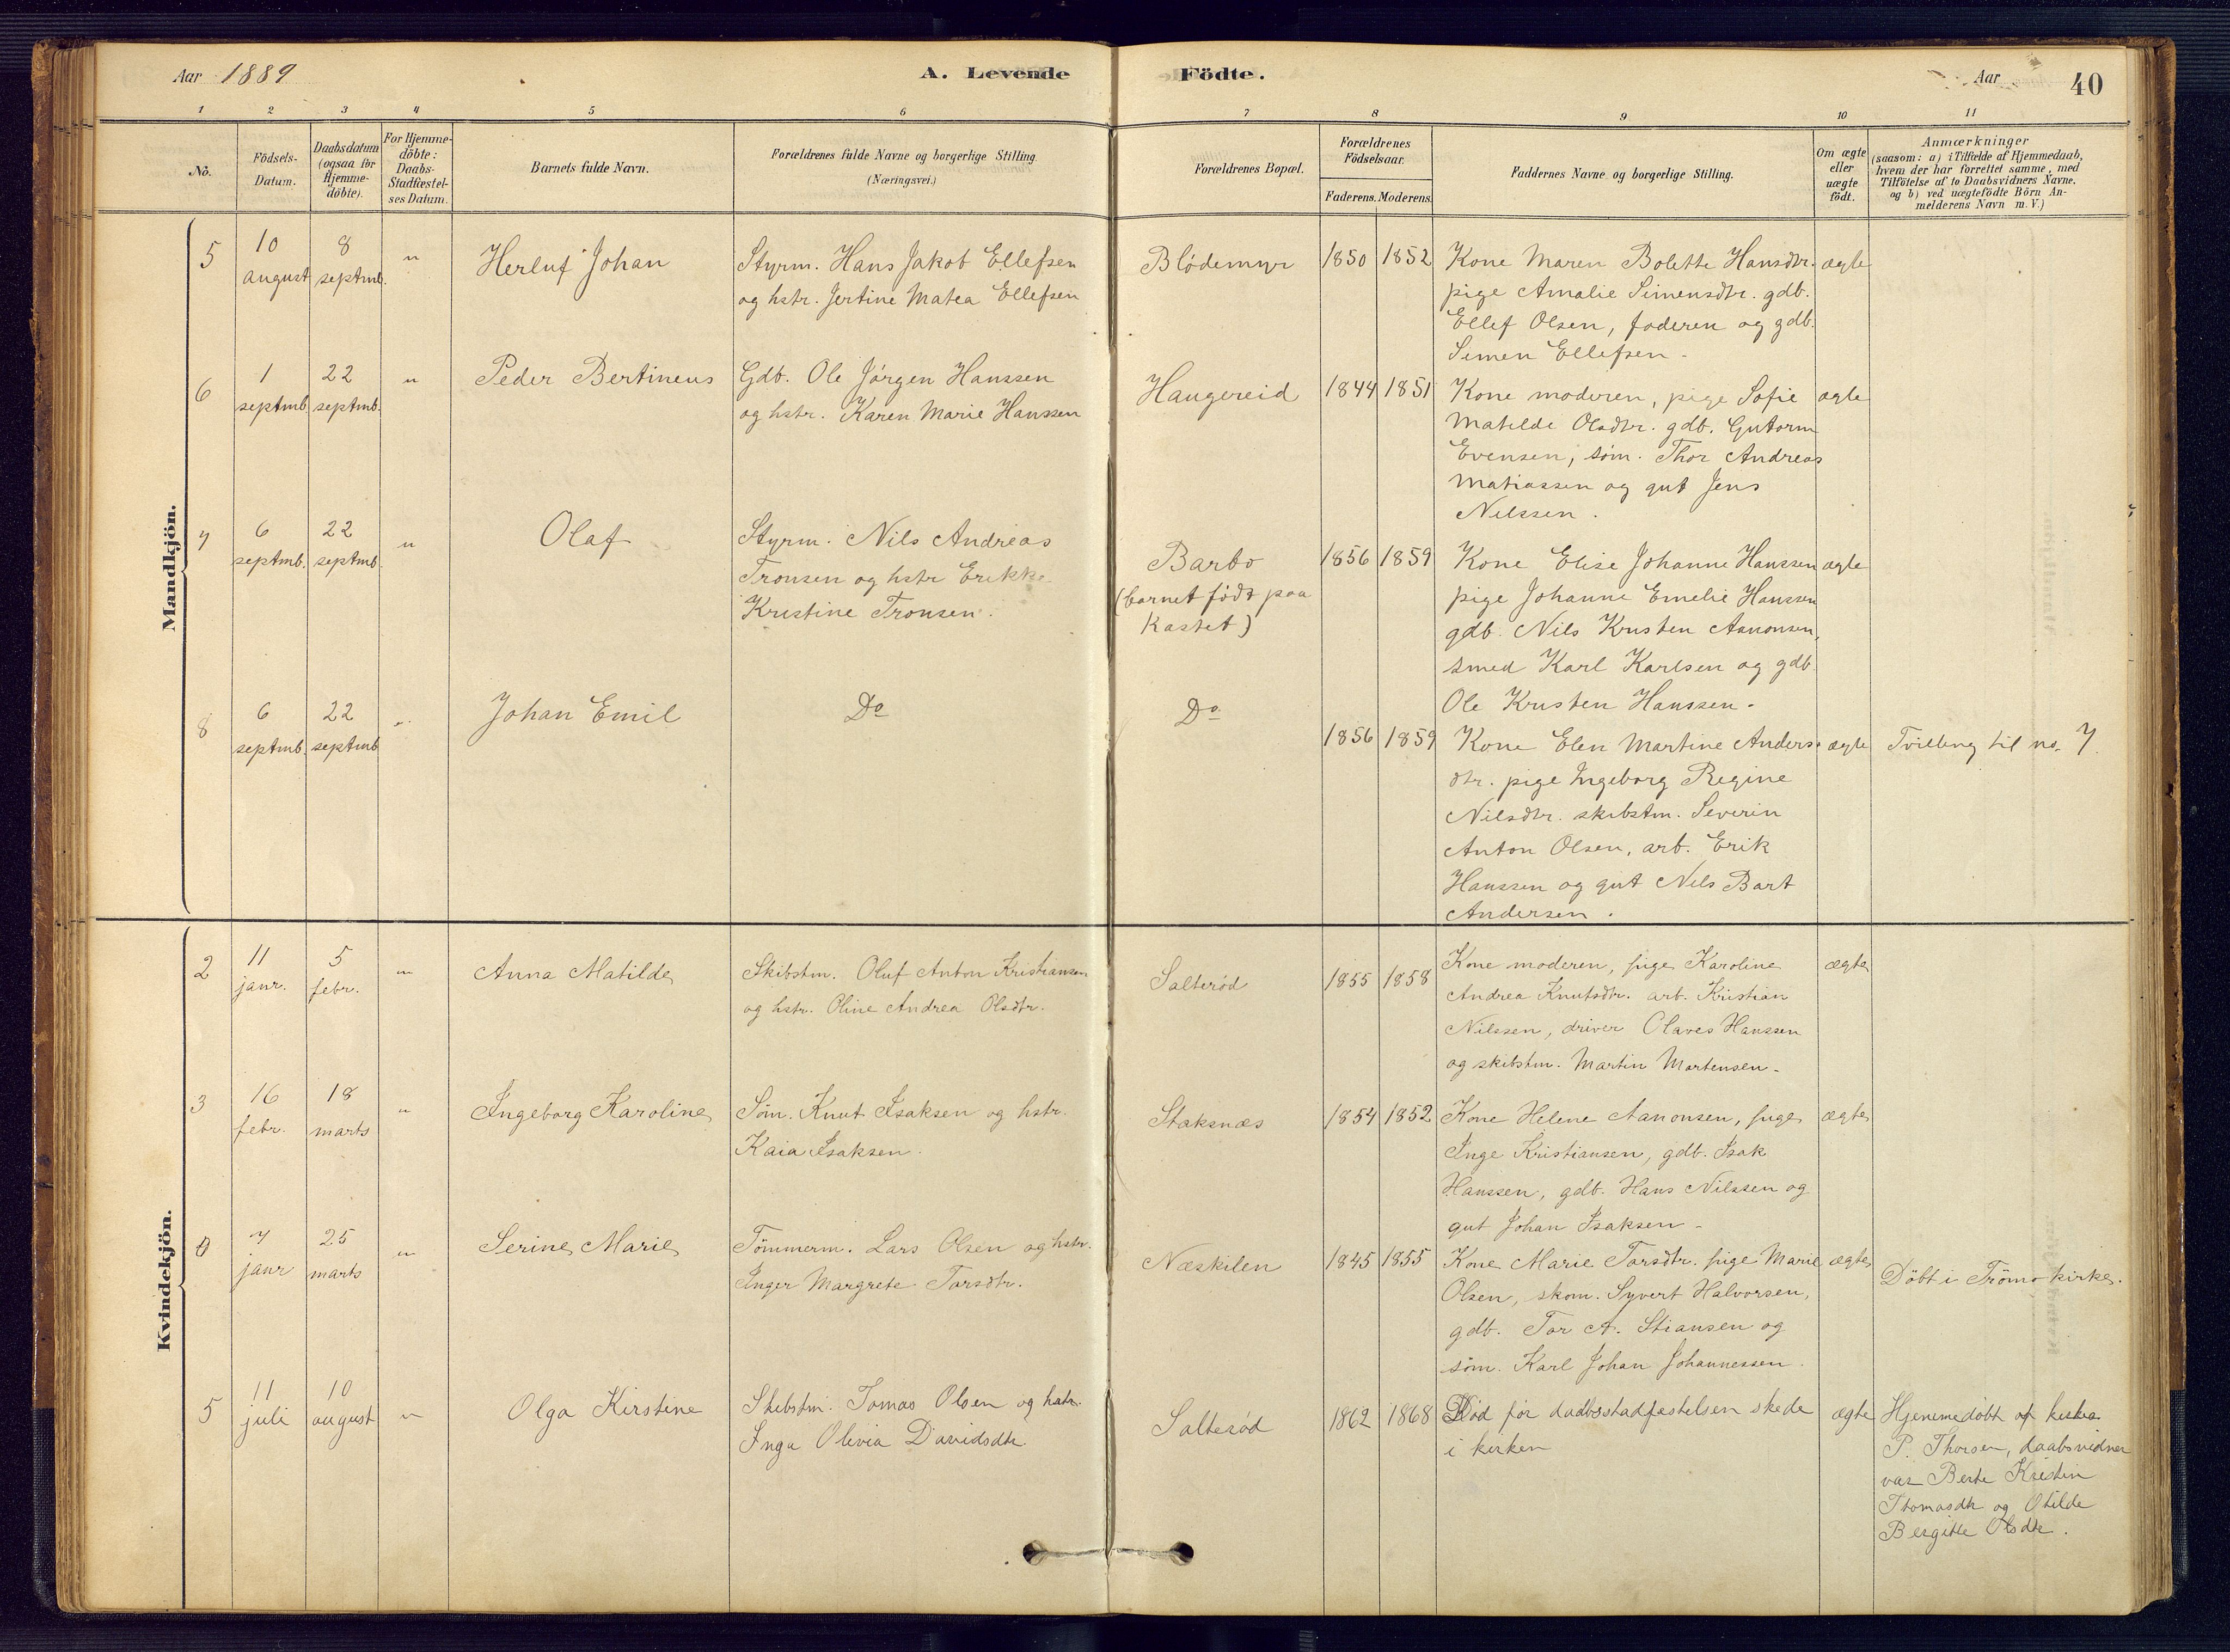 Aar 1889
A. Levende Födte.
Aar 40
1 2 3 4 5 6 7 8 9 10 11
No.
Födsels-
Datum.
Daabsdatum
(ogsaa for
Hjemme-
döbte).
For Hjemme-
döbte:
Daabs-
Stadfæstel-
ses Datum.
Barnets fulde Navn.
Forældrenes fulde Navne og borgerlige Stilling
(Næringsvei.)
Forældrenes Bopæl.
Forældrenes
Födselsaar.
Faderens. Moderens.
Faddernes Navne og borgerlige Stilling.
Om ægte
eller
uægte
födt.
Anmærkninger
(saasom: a) i Tilfælde af Hjemmedaab,
hvem der har forrettet samme, med
Tilföielse af to Daabsvidners Navne.
og b) ved uægtefödte Börn An-
melderens Navn m. V.)
Mandkjön.
5
10
august
8
septmb.
"
Herluf Johan
Styrm. Hans Jakob Ellefsen
og hstr. Jertine Matea Ellefsen
Blödemyr
1850 1852
Kone Maren Bolette Hansdtr.
pige Amalie Simensdtr. gdb.
Ellef Olsen, faderen og gdb.
Simen Ellefsen -
ægte
6
1
septmb.
22
septmb.
"
Peder Bertineus
Gdb. Ole Jörgen Hanssen
og hstr. Karen Marie Hanssen
Haugereid
1844 1851
Kone moderen, pige Sofie
Matilde Olsdtr. gdb. Gutorm
Evensen, söm. Thor Andreas
Matiassen og gut Jens
Nilssen.
ægte
7
6
septmb.
22
septmb.
"
Olaf
Styrm. Nils Andreas
Tronsen og hstr Erikke
Kristine Tronsen.
Barbo
(barnet födt paa
Kastet)
1856 1859
Kone Elise Johanne Hanssen
pige Johanne Emelie Hanssen
gdb. Nils Kristen Aanonsen,
smed Karl Karlsen og gdb.
Ole Kristen Hanssen.
ægte
8
6
septmb.
22
septmb
"
Johan Emil
Do
Do
1856 1859
Kone Elen Martine Anders-
dtr. pige Ingeborg Regine
Nilsdtr. skibstm. Severin
Anton Olsen, arb. Erik
Hanssen og gut Nils Bart
Andersen.
ægte
Tvilling til no. 7.
Kvindekjön.
2
11
janr.
5
febr.
"
Anna Matilde
Skibstm. Oluf Anton Kristiansen
og hstr. Oline Andrea Olsdtr.
Salteröd
1855 1858
Kone moderen, pige Karoline
Andrea Knutsdtr. arb. Kristian
Nilssen, driver Olaves Hanssen
og skibstm. Martin Mortensen.
ægte
3
16
febr.
18
marts
"
Ingeborg Karoline
Söm. Knut Isaksen og hstr.
Kaia Isaksen.
Staksnæs
1854 1852
Kone Helene Aanonsen, pige
Inge Kristiansen, gdb. Isak
Hanssen, gdb. Hans Nilssen og
gut Johan Isaksen -
ægte
0
7
janr
25
marts
"
Serine Marie
Tömmerm. Lars Olsen og hstr.
Inger Margrete Tarsdtr.
Næskilen
1845 1855
Kone Marie Tarsdtr. pige Marie
Olsen, skom. Syvert Halvorsen,
gdb. Tar A. Stiansen og
söm. Karl Johan Johannessen.
ægte
Döbt i Trömo kirke.
5
11
juli
10
august
"
Olga Kirstine
Skibstm. Tomas Olsen og hstr.
Inga Olivia Davidsdtr.
Salteröd
1862 1868
Död för daabsstadfæstelsen skede
i kirken
ægte
Hjemmedöbt af
P. Thorsen, daabsvidner
var Berte Kristin
Thomasdtr og Otilde
Bergitte Olsdtr.